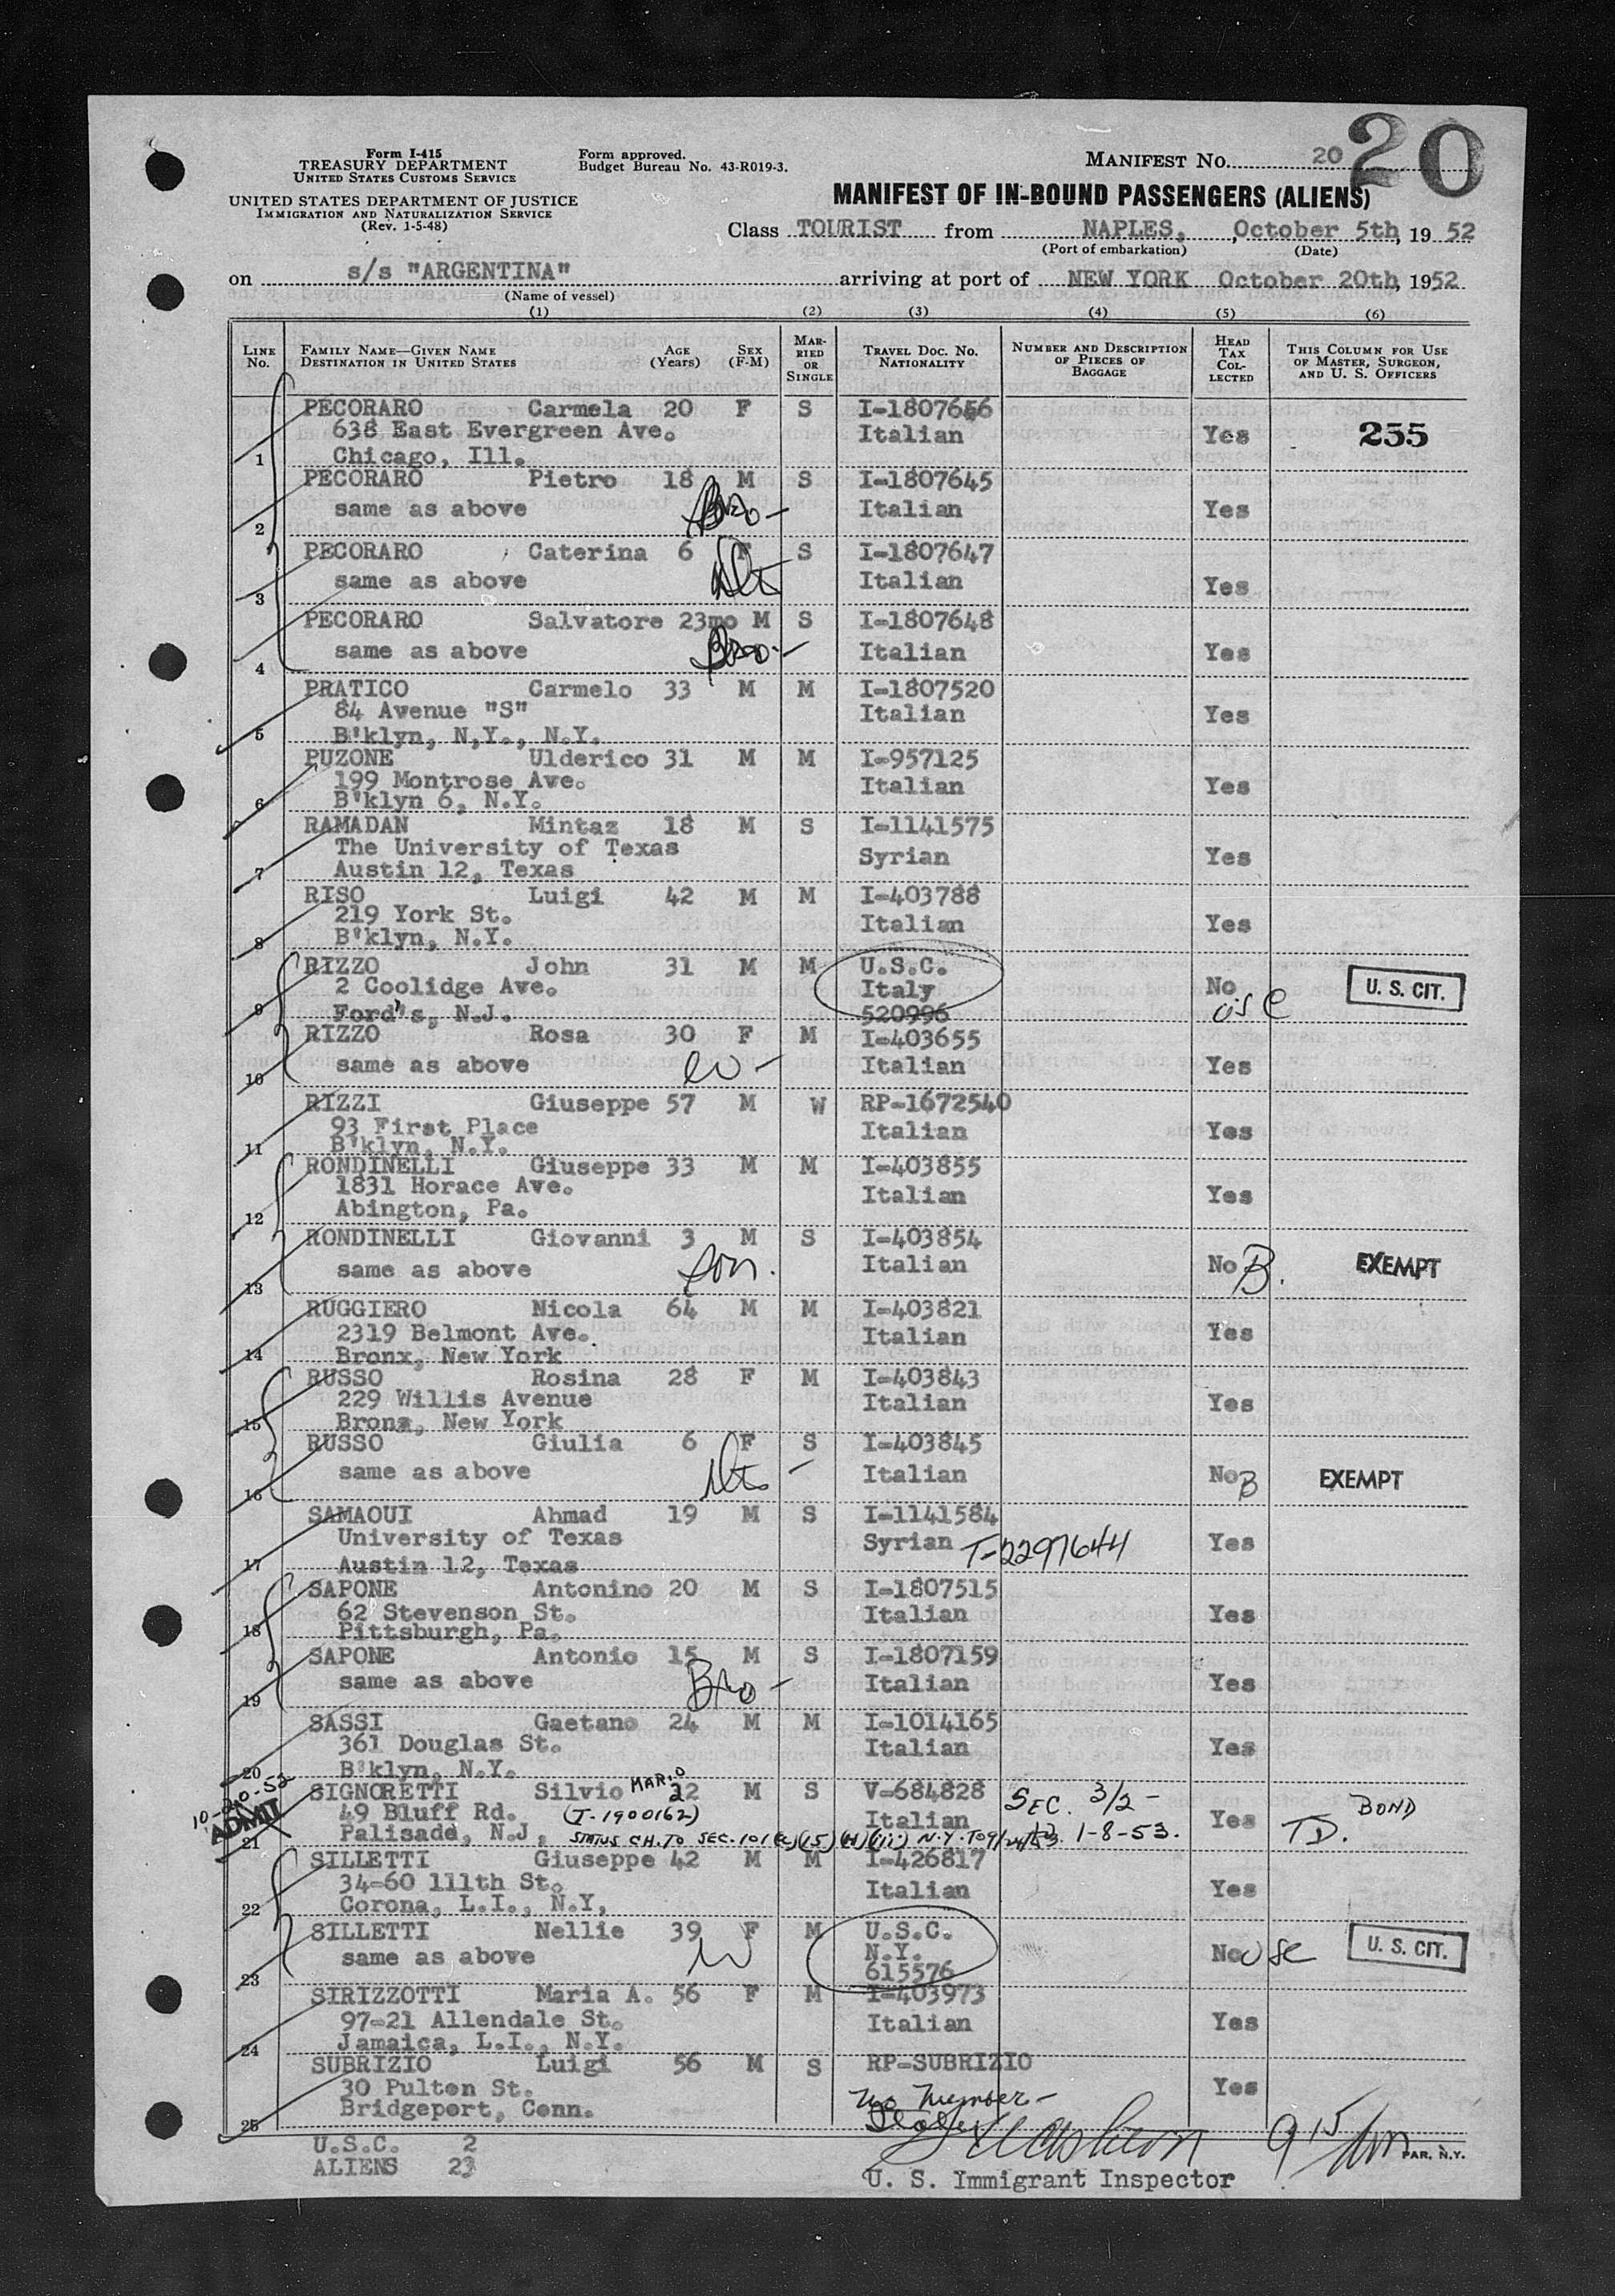 20
Form I-415
TREASURY DEPARTMENT
UNITED STATES CUSTOMS SERVICE
UNITED STATES DEPARTMENT OF JUSTICE
IMMIGRATION AND NATURALIZATION SERVICE
(Rev. 1-5-48)
Form approved.
Budget Bureau No. 43-R019-3.
MANIFEST No. 20
MANIFEST OF IN-BOUND PASSENGERS (ALIENS)
Class TOURIST from NAPLES, October 5th, 19 52
(Port of embarkation) (Date)
on s/s "ARGENTINA" arriving at port of NEW YORK October 20th, 1952
(Name of vessel)
(1) (2) (3) (4) (5) (6)
LINE No. FAMILY NAME—GIVEN NAME DESTINATION IN UNITED STATES AGE (Years) SEX (F-M) MARRIED OR SINGLE TRAVEL DOC. No. NATIONALITY NUMBER AND DESCRIPTION OF PIECES OF BAGGAGE HEAD TAX COLLECTED THIS COLUMN FOR USE OF MASTER, SURGEON, AND U. S. OFFICERS
PECORARO Carmela 20 F S I-1807656
638 East Evergreen Ave. Italian Yes 255
1 Chicago, Ill.
PECORARO Pietro 18 M S I-1807645
same as above Bro- Italian Yes
2
PECORARO Caterina 6 F S I-1807647
same as above Italian Yes
3
PECORARO Salvatore 23mo M S I-1807648
same as above Bro- Italian Yes
4
PRATICO Carmelo 33 M M I-1807520
84 Avenue "S" Italian Yes
5 B'klyn, N,Y., N.Y.
PUZONE Ulderico 31 M M I-957125
199 Montrose Ave. Italian Yes
6 B'klyn 6, N.Y.
RAMADAN Mintaz 18 M S I-1141575
The University of Texas Syrian Yes
7 Austin 12, Texas
RISO Luigi 42 M M I-403788
219 York St. Italian Yes
8 B'klyn, N.Y.
RIZZO John 31 M M U.S.C.
2 Coolidge Ave. Italy No U. S. CIT.
9 Ford's, N.J. 520996 USC
RIZZO Rosa 30 F M I-403655
same as above W- Italian Yes
10
RIZZI Giuseppe 57 M W RP-1672540
93 First Place Italian Yes
11 B'klyn, N.Y.
RONDINELLI Giuseppe 33 M M I-403855
1831 Horace Ave. Italian Yes
12 Abington, Pa.
RONDINELLI Giovanni 3 M S I-403854
same as above son. Italian No B. EXEMPT
13
RUGGIERO Nicola 64 M M I-403821
2319 Belmont Ave. Italian Yes
14 Bronx, New York
RUSSO Rosina 28 F M I-403843
229 Willis Avenue Italian Yes
15 Bronx, New York
RUSSO Giulia 6 F S I-403845
same as above Italian No B EXEMPT
16
SAMAOUI Ahmad 19 M S I-1141584
University of Texas Syrian T-2297644 Yes
17 Austin 12, Texas
SAPONE Antonino 20 M S I-1807515
62 Stevenson St. Italian Yes
18 Pittsburgh, Pa.
SAPONE Antonio 15 M S I-1807159
same as above Bro- Italian Yes
19
SASSI Gaetano 24 M M I-1014165
361 Douglas St. Italian Yes
20 B'klyn, N.Y.
10-20-52 SIGNORETTI Silvio MARIO 22 M S V-684828 SEC. 3/2-
ADMIT 49 Bluff Rd. (T-1900162) Italian Yes TD. BOND
21 Palisade, N.J. STATUS CH. TO SEC. 101(a)(15)(H)(iii) N.Y. TO 1-8-53.
SILLETTI Giuseppe 42 M M I-426817
34-60 111th St. Italian Yes
22 Corona, L.I., N.Y,
SILLETTI Nellie 39 F M U.S.C.
same as above W N.Y. No USC U. S. CIT.
23 615576
SIRIZZOTTI Maria A. 56 F M I-403973
97-21 Allendale St. Italian Yes
24 Jamaica, L.I., N.Y.
SUBRIZIO Luigi 56 M S RP-SUBRIZIO
30 Pulton St. no number- Yes
25 Bridgeport, Conn.
U.S.C. 2
ALIENS 23
U. S. Immigrant Inspector
PAR, N.Y.